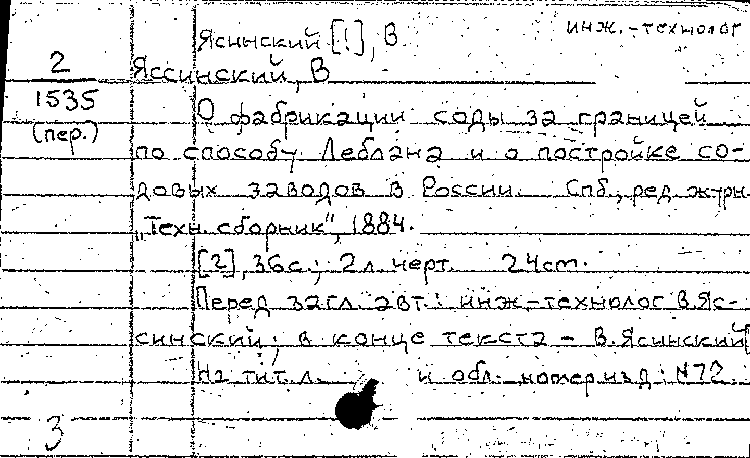 Ясинский [!], В инж.-технолог
2 Яссинский, В
1535 О фабрикации соды за границей
(пер.) по способу Леблана и о постройке со-
довых заводов в России. Спб., ред. журн.
„Техн. сборник", 1884.
[2], 36 с.; 2 л. черт. 24 см.
Перед загл. авт.: инж.-технолог В. Яс-
синский; в конце текста – В. Ясинский
На тит. л. и обл. номер изд: №72.
3